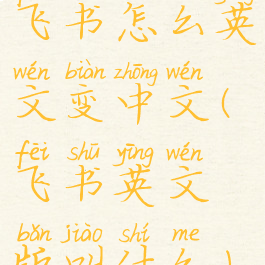 飞书怎么英
wén biàn zhōng wén
文变中文(
fēi shū yīng wén
飞书英文
bǎn jiào shí me
版叫什么)